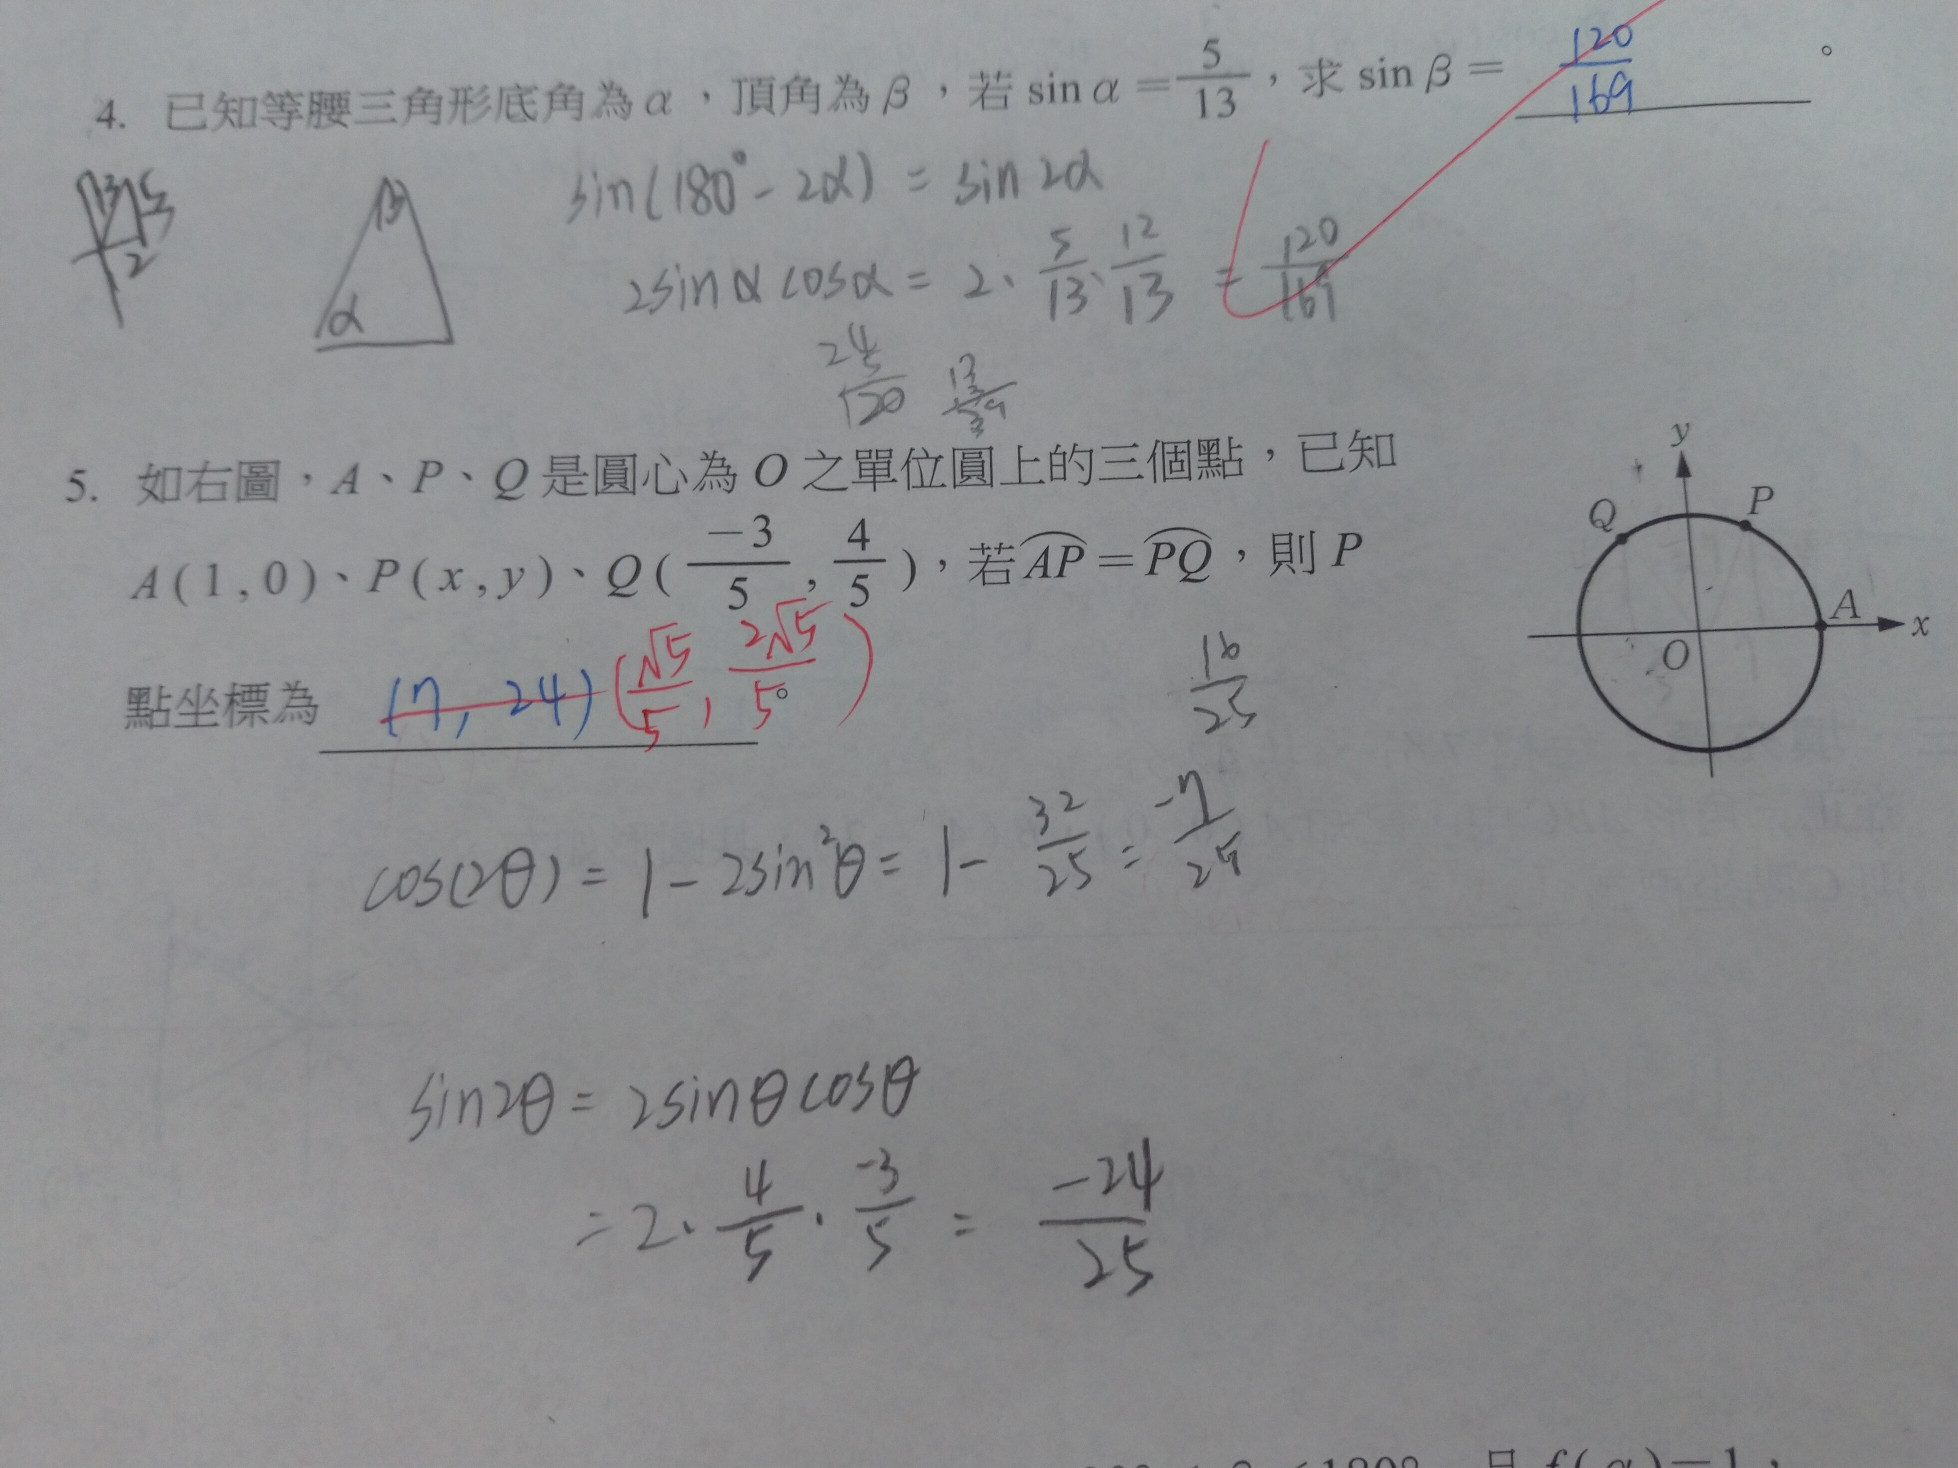 4. 已知等腰三角形底角為α，頂角為β，若 sin α = 5/13，求 sin β = 120/169 。
13 5
β
α
sin(180° - 2α) = sin 2α
2sin α cos α = 2 · 5/13 · 12/13 = 120/169
24
5
120
13
5. 如右圖，A、P、Q 是圓心為 O 之單位圓上的三個點，已知
A(1,0)、P(x,y)、Q(-3/5, 4/5)，若 AP = PQ，則 P
點坐標為 (7, 24) (√5/5, 2√5/5) 。
y
Q P
A
O x
16/25
cos(2θ) = 1 - 2sin²θ = 1 - 32/25 = -7/25
sin2θ = 2sinθcosθ
= 2 · 4/5 · -3/5 = -24/25